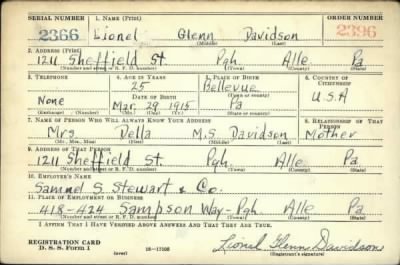 SERIAL NUMBER 1. NAME (Print) ORDER NUMBER
2366 Lionel Glenn Davidson 2396
(First) (Middle) (Last)
2. ADDRESS (Print)
1211 Sheffield St. Pgh Alle Pa
(Number and street or R. F. D. number) (Town) (County) (State)
3. TELEPHONE 4. AGE IN YEARS 5. PLACE OF BIRTH 6. COUNTRY OF CITIZENSHIP
25 Bellevue
None DATE OF BIRTH (Town or county) U.S.A
Mar. 29 1915 Pa
(Exchange) (Number) (Mo.) (Day) (Yr.) (State or country)
7. NAME OF PERSON WHO WILL ALWAYS KNOW YOUR ADDRESS 8. RELATIONSHIP OF THAT PERSON
Mrs Della M.S Davidson Mother
(Mr., Mrs., Miss) (First) (Middle) (Last)
9. ADDRESS OF THAT PERSON
1211 Sheffield St. Pgh. Alle Pa
(Number and street or R. F. D. number) (Town) (County) (State)
10. EMPLOYER'S NAME
Samuel S. Stewart & Co.
11. PLACE OF EMPLOYMENT OR BUSINESS
418-424 Sampson Way-Pgh Alle Pa
(Number and street or R. F. D. number) (Town) (County) (State)
I AFFIRM THAT I HAVE VERIFIED ABOVE ANSWERS AND THAT THEY ARE TRUE.
REGISTRATION CARD
D. S. S. Form 1 (over) 16—17105 Lionel Glenn Davidson
(Registrant's signature)